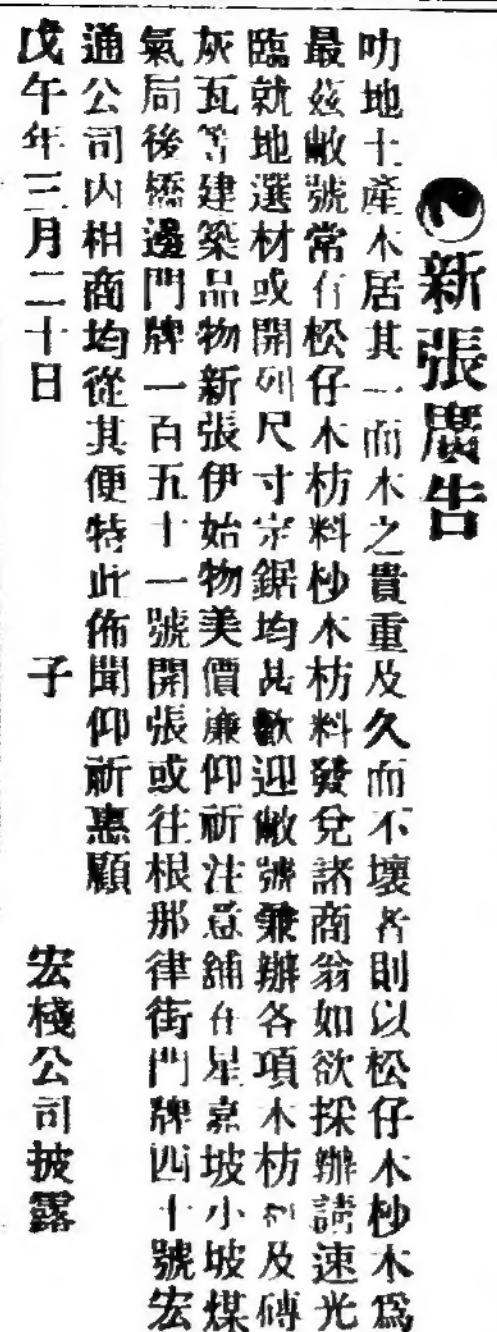 新張廣告
叻地土產木居其一而木之貴重及久而不壞者則以松仔木杪木爲
最茲敝號常有松仔木枋料杪木枋料發兌諸商翁如欲採辦請速光
臨就地選材或開列尺寸定鋸均甚歡迎敝號兼辦各項木枋料及磚
灰瓦等建築品物新張伊始物美價廉仰祈注意舖在星嘉坡小坡煤
氣局後橋邊門牌一百五十一號開張或往根那律街門牌四十號宏
通公司內相商均從其便特此佈聞仰祈惠顧
戊午年三月二十日 子 宏棧公司披露